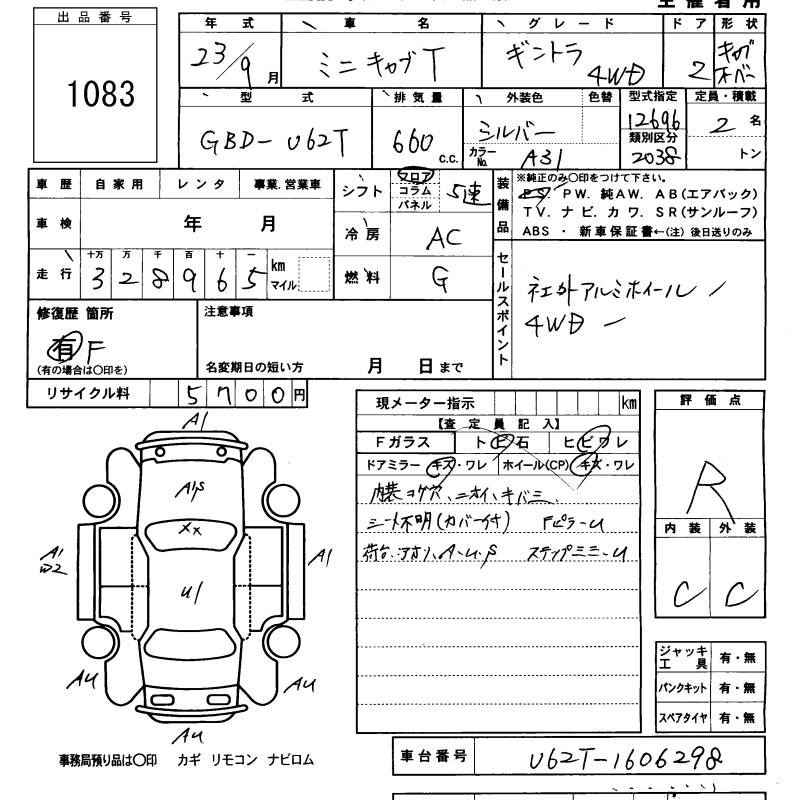 主催者用
出品番号
1083
年式 車名 グレード ドア 形状
23/9月 ミニキャブT 4WD 2 キャブオーバー
型式 排気量 外装色 色替 型式指定 定員・積載
GBD-U62T 660 C.C. シルバー 12696 2名
カラーNo. A31 類別区分 2038 トン
車歴 自家用 レンタ 事業.営業車
シフト フロア コラム パネル 5速
装備品 ※純正のみ〇印をつけて下さい。
PS. PW. 純AW. AB(エアバック)
TV. ナビ. カワ. SR(サンルーフ)
ABS ・ 新車保証書←(注)後日送りのみ
車検 年 月
冷房 AC
走行 十万 万 千 百 十 一
328965 km マイル
燃料 G
セールスポイント
社外アルミホイール
4WD
修復歴 箇所
有 F
(有の場合は〇印を)
注意事項
名変期日の短い方 月 日まで
リサイクル料 5700円
現メーター指示 km
【査定員記入】
Fガラス トビ石 ヒビワレ
ドアミラー キズ・ワレ ホイール(CP) キズ・ワレ
内装コゲ穴、ニオイ、キバミ、
シート不明(カバー付) Fピラ-U
荷台、アオリ、A-U-S ステップミミ-U
評価点
R
内装 外装
C C
A1
A1S
XX
A1
W2
U1
A1
AU
AU
AU
ジャッキ工具 有・無
パンクキット 有・無
スペアタイヤ 有・無
事務局預り品は〇印 カギ リモコン ナビロム
車台番号 U62T-1606298